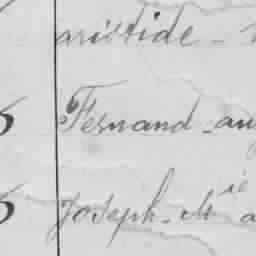 aristide -
5 Fernand - aug
5 Joseph - Mie a